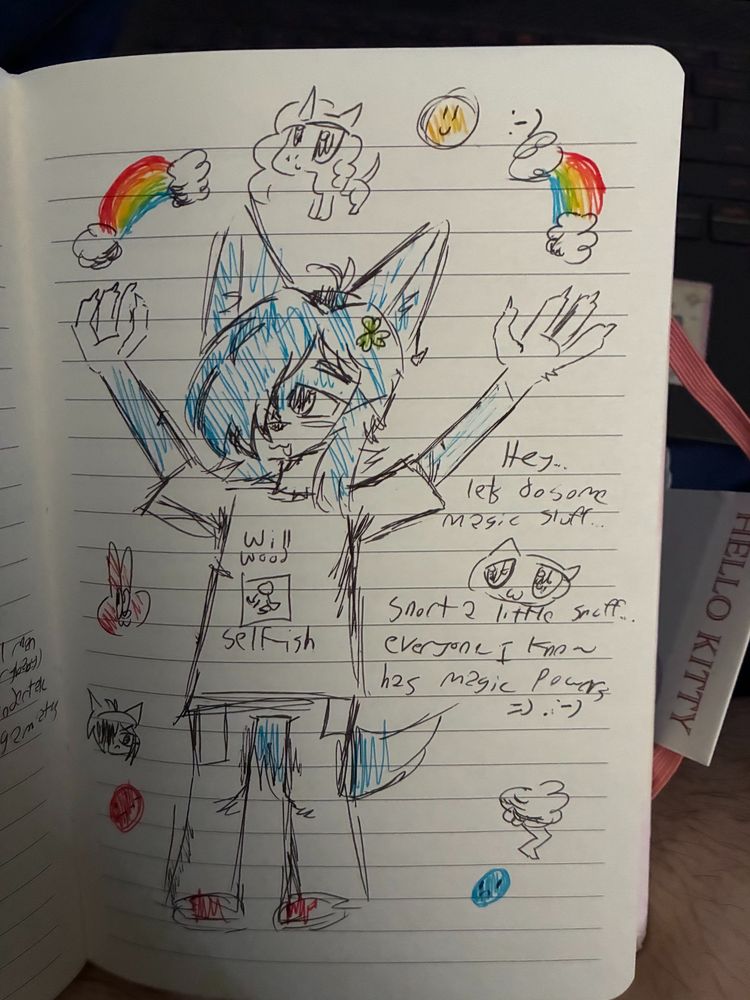 :-)
Hey...
lets do some
magic stuff...
Will
Wood
SelFish
Snort a little snuff...
everyone I know
has magic powers
=) .:-)
HELLO KITTY